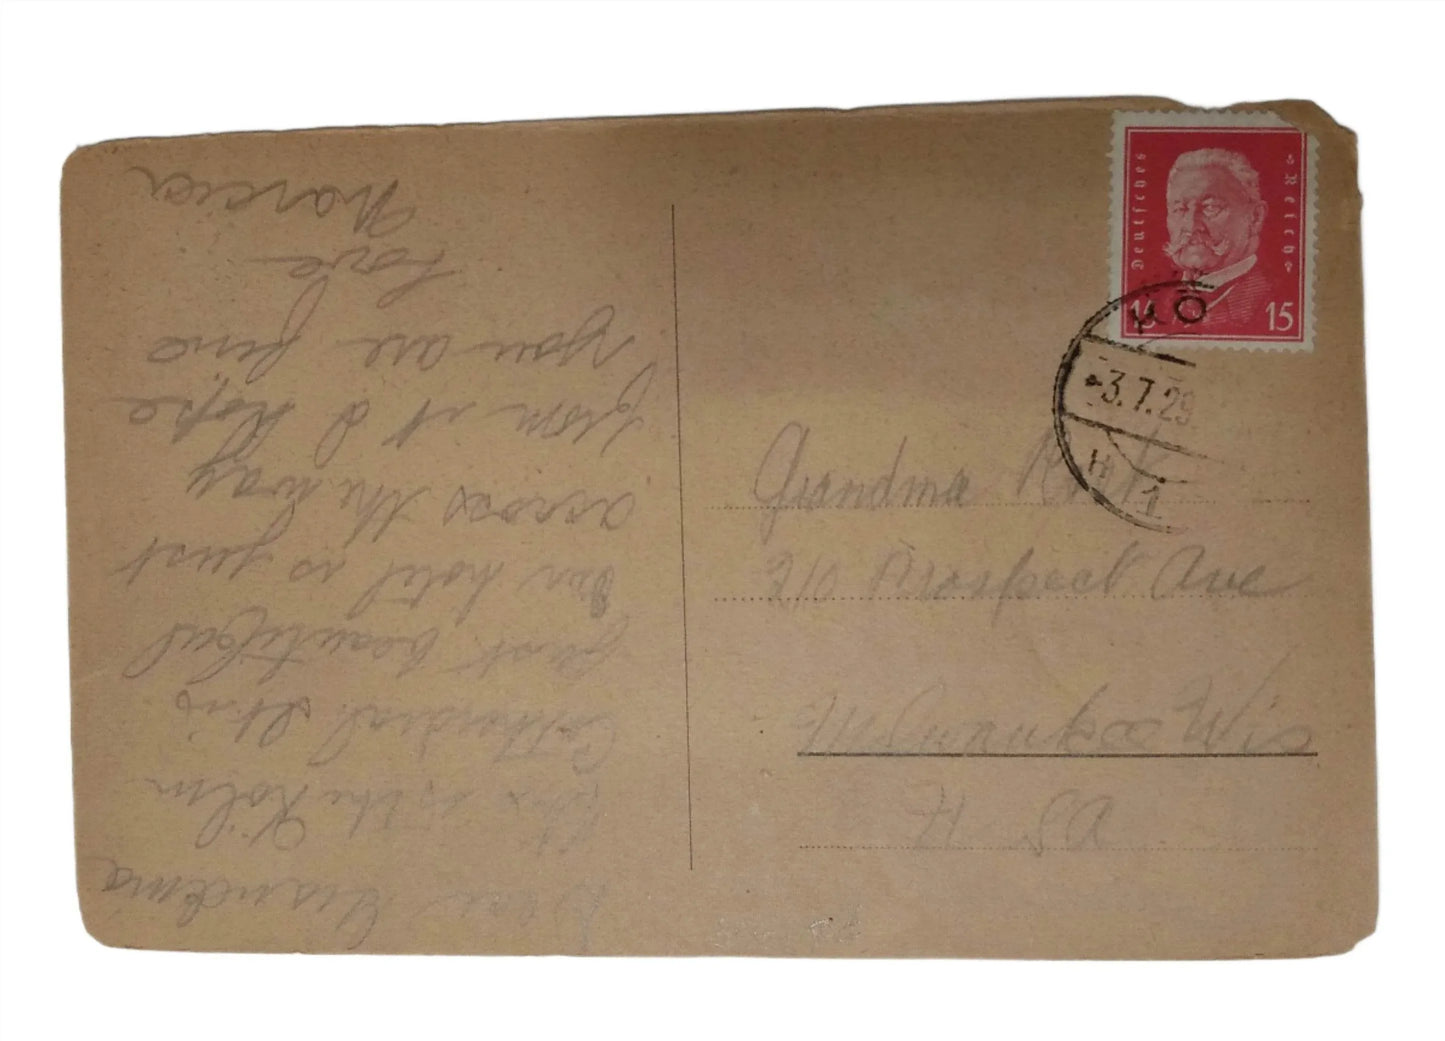 Dear Grandma
This is the Köln
Cathedral. It is
just beautiful
Our hotel is just
across the way
from it I hope
you are fine
Love
Marcia
Deutsches Reich
15 15
KÖ
-3.7.29
1
Grandma
210 Prospect Ave
Milwaukee
Wis